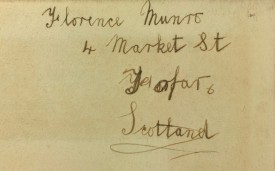 Florence Munro
4 Market St
Forfar
Scotland